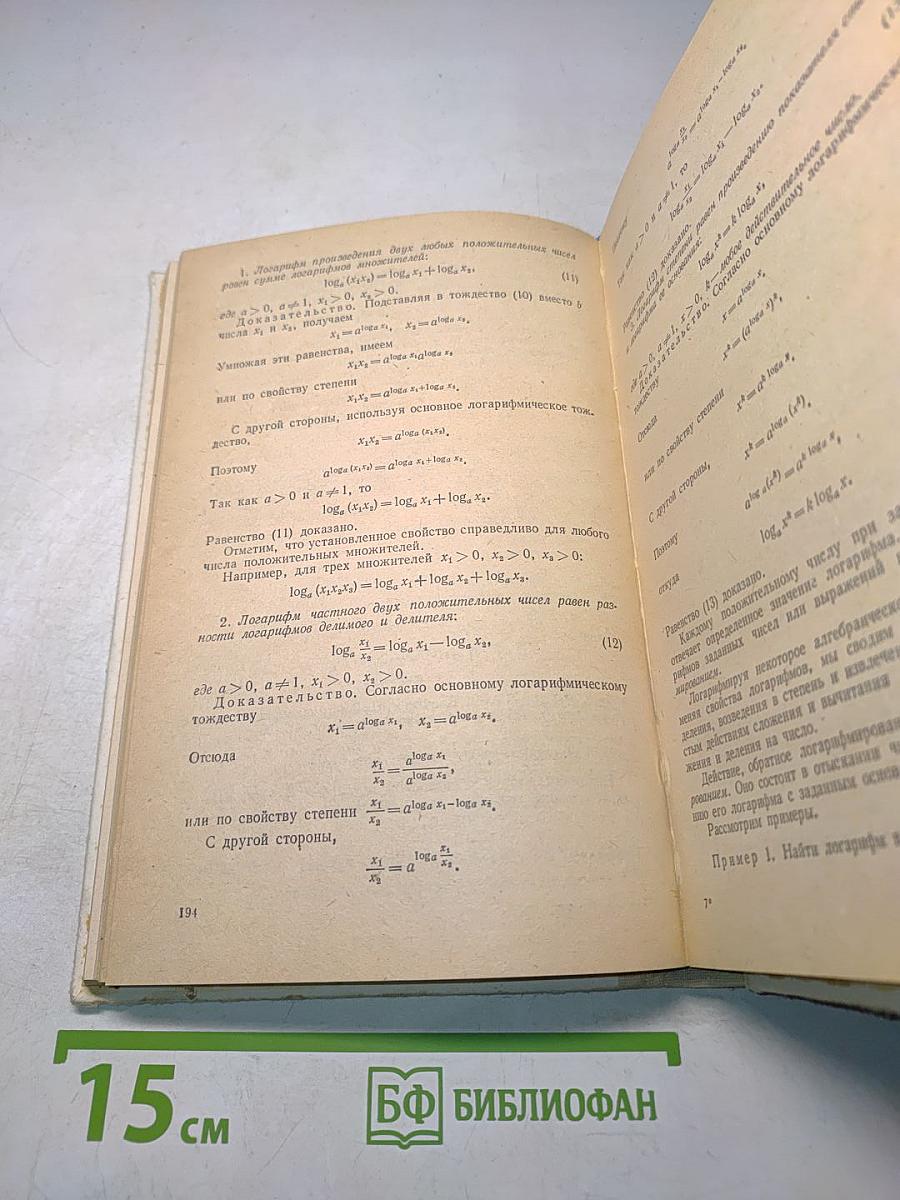 1. Логарифм произведения двух любых положительных чисел
равен сумме логарифмов множителей:
logₐ (x₁x₂) = logₐ x₁ + logₐ x₂, (11)
где a > 0, a ≠ 1, x₁ > 0, x₂ > 0.
Доказательство. Подставляя в тождество (10) вместо b
числа x₁ и x₂, получаем
x₁ = a^{logₐ x₁}, x₂ = a^{logₐ x₂}.
Умножая эти равенства, имеем
x₁x₂ = a^{logₐ x₁}a^{logₐ x₂}
или по свойству степени
x₁x₂ = a^{logₐ x₁ + logₐ x₂}.
С другой стороны, используя основное логарифмическое тож-
дество,
x₁x₂ = a^{logₐ (x₁x₂)}.
Поэтому
a^{logₐ (x₁x₂)} = a^{logₐ x₁ + logₐ x₂}.
Так как a > 0 и a ≠ 1, то
logₐ (x₁x₂) = logₐ x₁ + logₐ x₂.
Равенство (11) доказано.
Отметим, что установленное свойство справедливо для любого
числа положительных множителей.
Например, для трех множителей x₁ > 0, x₂ > 0, x₃ > 0:
logₐ (x₁x₂x₃) = logₐ x₁ + logₐ x₂ + logₐ x₃.
2. Логарифм частного двух положительных чисел равен раз-
ности логарифмов делимого и делителя:
logₐ x₁/x₂ = logₐ x₁ — logₐ x₂, (12)
где a > 0, a ≠ 1, x₁ > 0, x₂ > 0.
Доказательство. Согласно основному логарифмическому
тождеству
x₁ = a^{logₐ x₁}, x₂ = a^{logₐ x₂}.
Отсюда
x₁/x₂ = a^{logₐ x₁}/a^{logₐ x₂},
или по свойству степени x₁/x₂ = a^{logₐ x₁ – logₐ x₂}.
С другой стороны,
x₁/x₂ = a^{logₐ x₁/x₂}.
194
a^{logₐ x₁/x₂} = a^{logₐ x₁ – logₐ x₂}.
так как a > 0 и a ≠ 1, то
logₐ x₁/x₂ = logₐ x₁ — logₐ x₂.
Равенство (12) доказано.
3. Логарифм степени равен произведению показателя
логарифм ее основания:
logₐ xᵏ = k logₐ x,
где a > 0, a ≠ 1, x > 0, k — любое действительное число.
Доказательство. Согласно основному логарифмическому
тождеству
x = a^{logₐ x},
Отсюда
xᵏ = (a^{logₐ x})ᵏ,
или по свойству степени
xᵏ = a^{k logₐ x}.
С другой стороны,
xᵏ = a^{logₐ (xᵏ)}.
Поэтому
a^{logₐ (xᵏ)} = a^{k logₐ x},
откуда
logₐ xᵏ = k logₐ x.
Равенство (13) доказано.
Каждому положительному числу при
отвечает определенное значение логарифма.
рифмов заданных чисел или выражений
Логарифмируя некоторое
меняя свойства логарифмов, мы сводим
деления, возведения в степень и
стым действиям сложения и вычитания
жения и деления на число.
Действие, обратное
рованием. Оно состоит в отыскании
нию его логарифма с заданным
Рассмотрим примеры.
Пример 1. Найти логарифм
7*
15 см
БФ БИБЛИОФАН